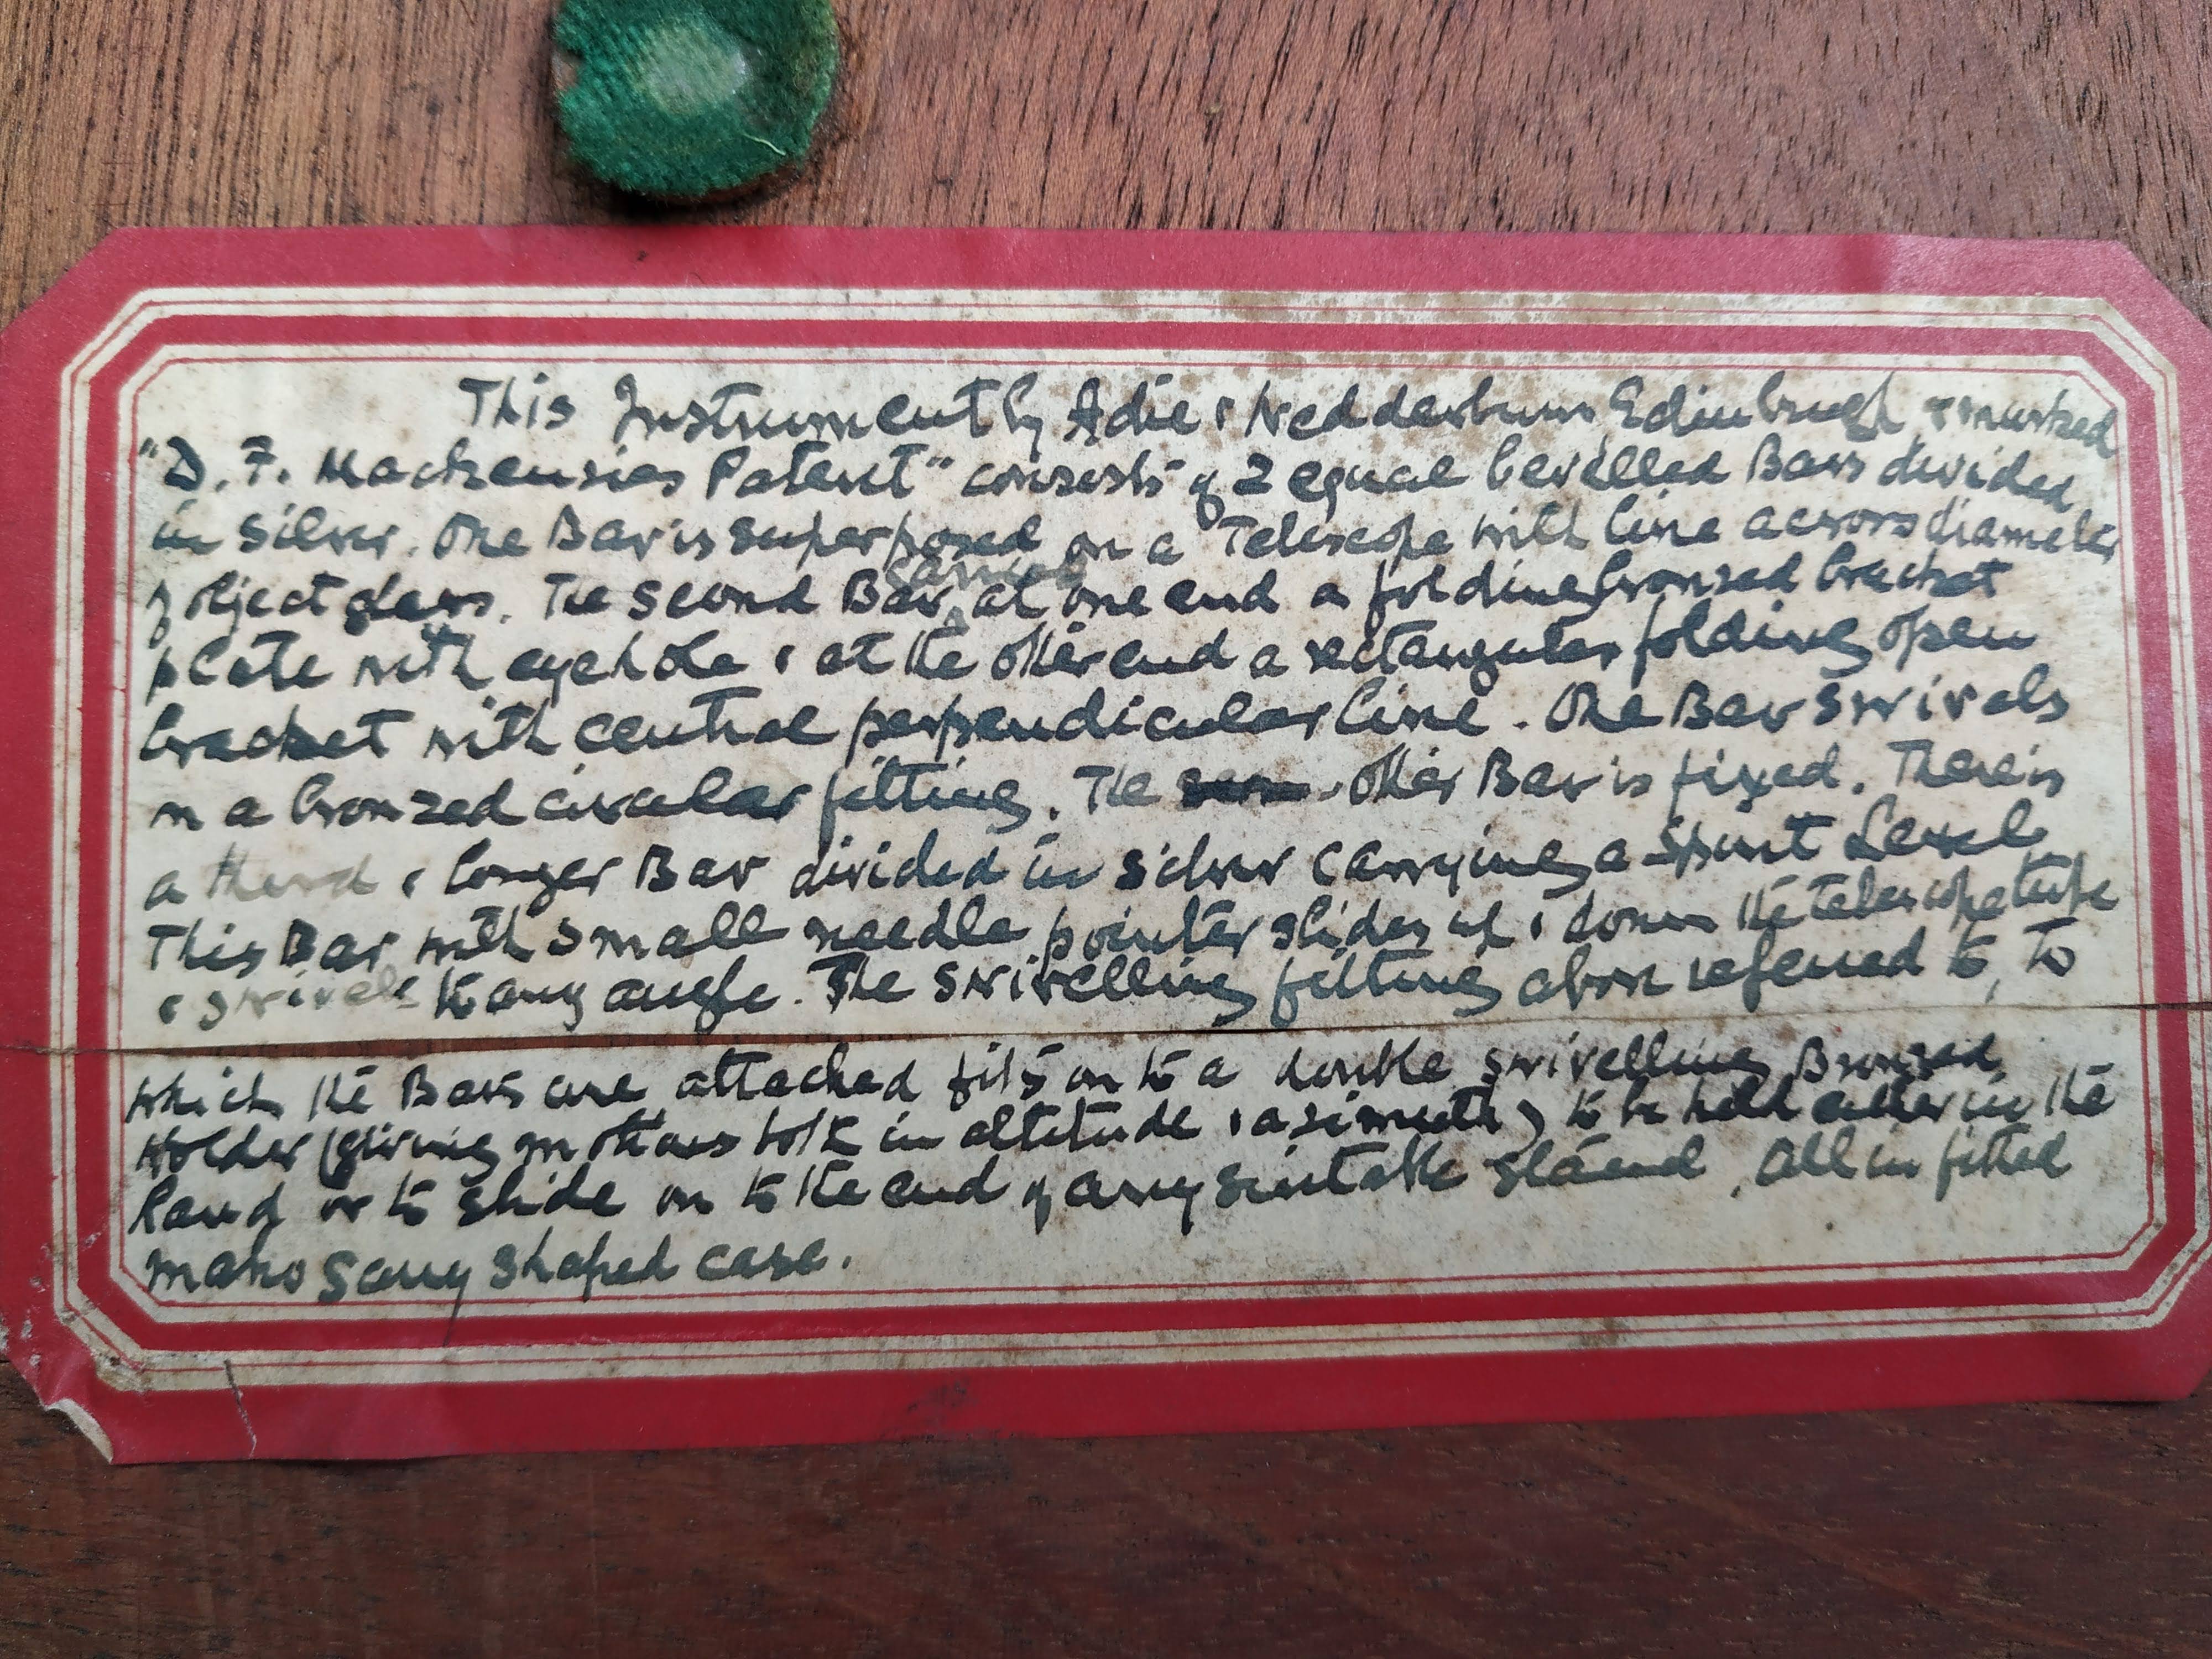 This Instrument by Adie & Wedderburn Edinburgh & marked
"D. F. Mackensies Patent" consists of 2 equal bevelled Bars divided
in silver. One Bar is superposed on a Telescope with line across diameter
of object glass. The second Bar carries at one end a folding bronzed bracket
plate with eyehole & at the other end a rectangular folding open
bracket with central perpendicular line. One Bar swivels
on a bronzed circular fitting. The other Bar is fixed. There is
a third & longer Bar divided in silver carrying a Spirit Level
This Bar with small needle pointer slides up & down the telescope tube
& swivels to any angle. The swivelling fitting above referred to, to
which the Bars are attached fits on to a double swivelling Bronzed
Holder (giving motions both in altitude & azimuth) to be held either in the
hand or to slide on to the end of any suitable stand. All in fitted
mahogany shaped case.